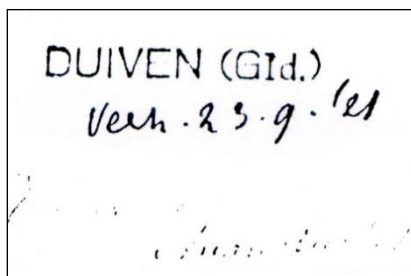 DUIVEN (Gld.)
Verh. 23.9.'21